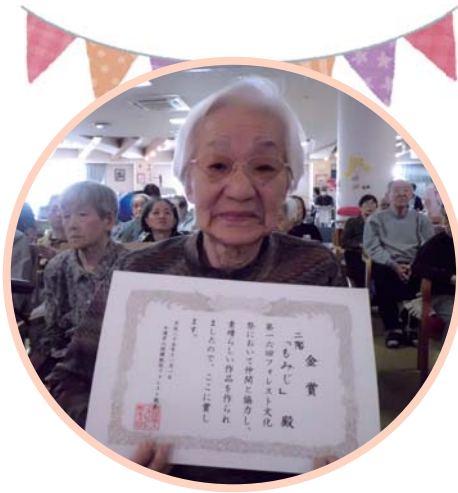 金賞
二階
「もみじ」 殿
第一六回フォレスト文化
祭において仲間と協力し、
素晴らしい作品を作られ
ましたので、ここに賞し
ます。